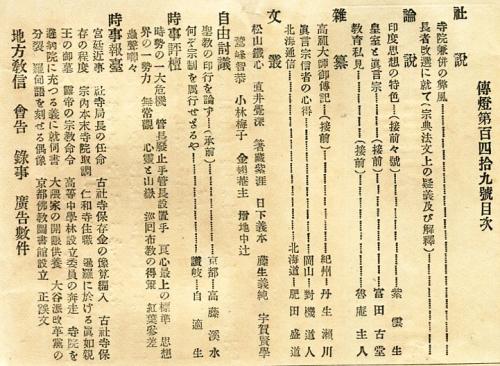 傳燈第百四拾九號目次
社說
寺院兼併の弊風
長者改選に就て(宗典法文上の疑義及び解釋)
論說
印度思想の特色(接前々號) 紫雲生
皇室と眞言宗(接前) 富田古堂
教育私見(接前) 魯庵主人
雜纂
高麗大師御傳記(接前) 紀州 丹生瀨川
眞言宗信者の心得 岡山 對機道人
北海通信 北海道 肥田盛道
文叢
松山鐵心 直井覺深 紫涯 日下義本 藤生義純 宇賀賢學
鷲峰智恭 小林梅子 主 中辻
自由討議
聖教の印行を論ず(承前) 京都 高藤溪水
何ぞ宗制を厲行せざるや 讃岐 自適生
時事評壇
時勢の一大危機 管長廢止乎管長設置乎 眞心最上の標準 思想
界の一勢力 無常觀 心靈と山嶽 巡回布教の得策 紅葉參差
蟲聲喞々
時事報臺
宮廷近事 社寺局長の任命 古社寺保存金の豫算編入 古社寺保
存の程度 宗內本末寺院取調 仁和寺住職 暹羅に於ける眞如親
王の御墓 露帝の宗教命令 高等中學林設立委員の奔走 寺院を
避病院に充つる義に就伺書 大隈家の開眼供養 大谷派改革黨の
分裂 羅甸語を刻せる偶像 京都佛教圖書館設立 正誤文
地方教信 會告 錄事 廣告數件